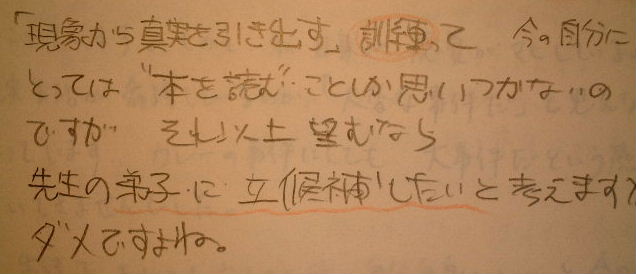 「現象から真実を引き出す」訓練って 今の自分に
とっては"本を読む"ことしか思いつかないの
ですが それ以上望むなら
先生の弟子に立候補したいと考えます
ダメですよね。